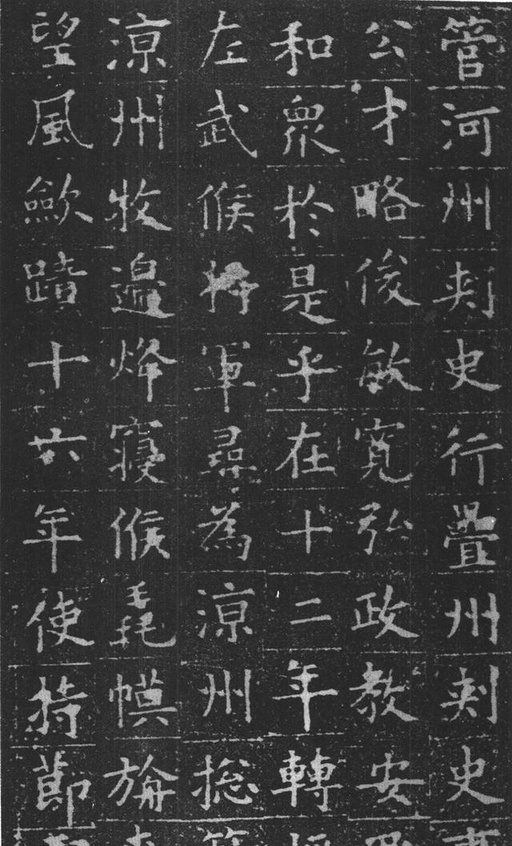 管河州刺史行疊州刺史
公才略俊敏寬弘政教安
和衆於是乎在十二年轉
左武候將軍尋為涼州揔
涼州牧邉烽寢候毳幙旃
望風歛蹟十六年使持節